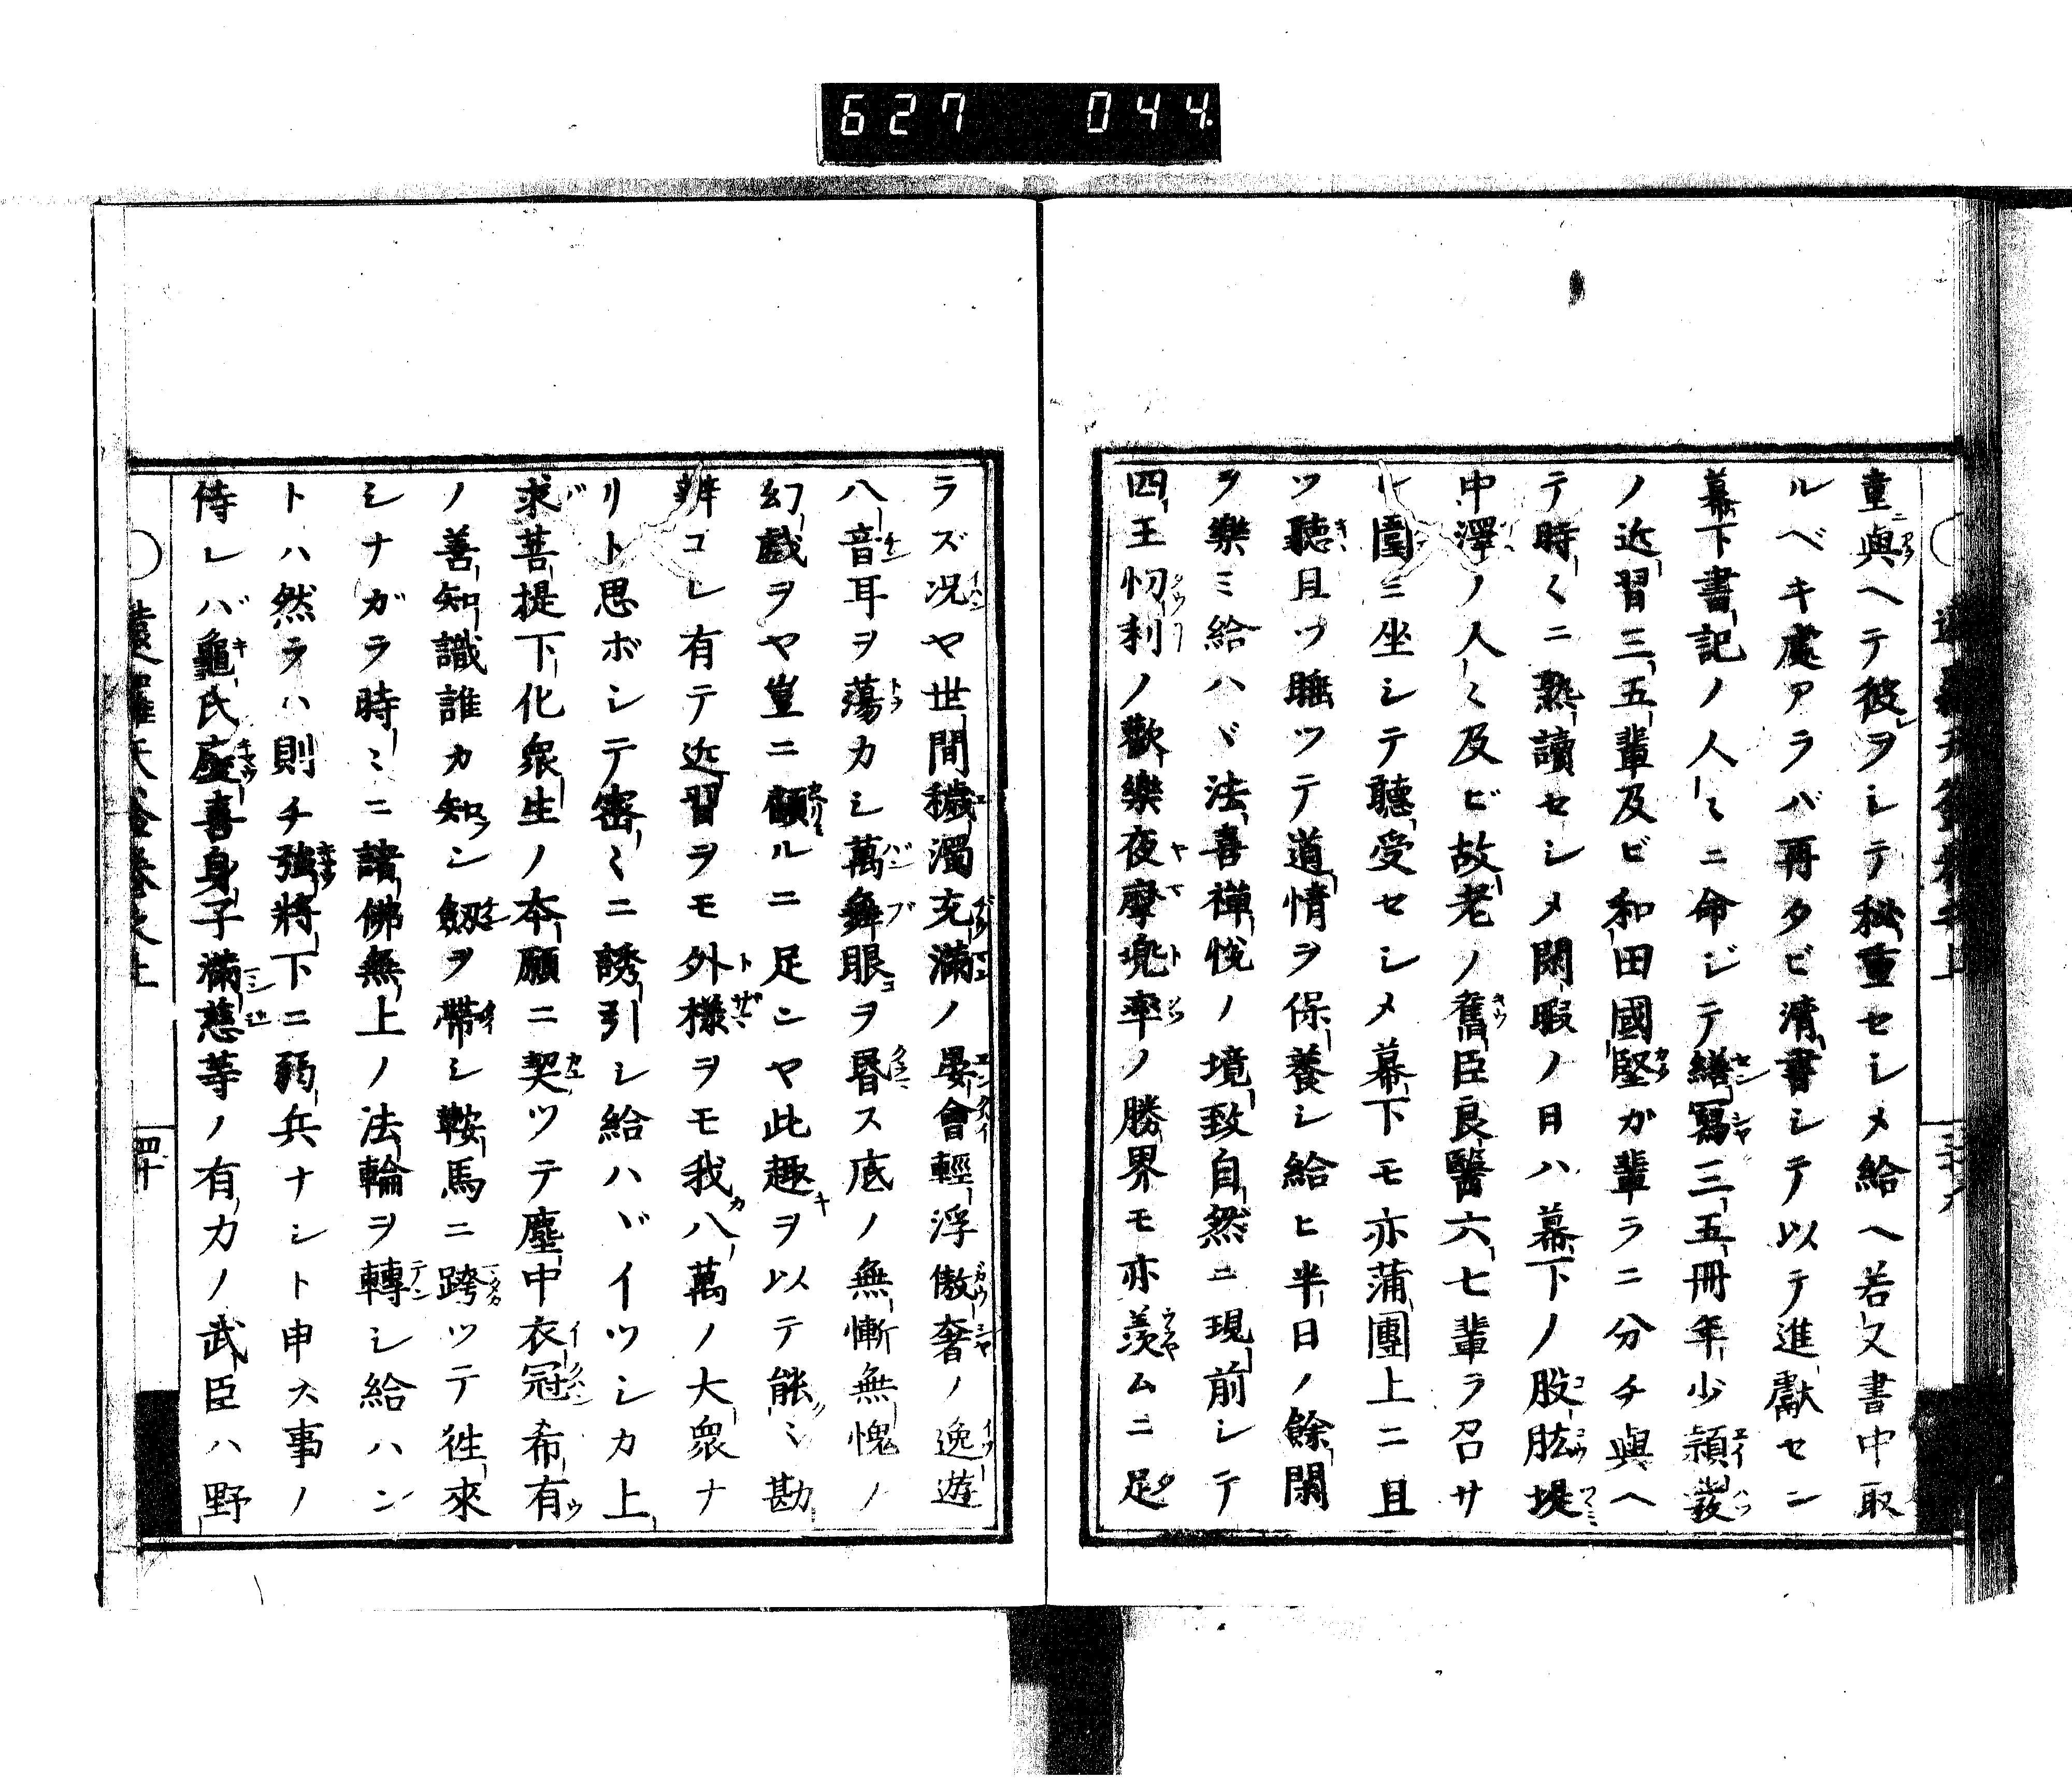 627 044
重與ヘテ彼ヲシテ秘重セシメ給ヘ若又書中取
ルベキ處アラバ再タビ淸書シテ以テ進獻セン
幕下書記ノ人〻ニ命ジテ繕寫三五冊年少頴發
ノ近習三五輩及ビ和田國堅ガ輩ラニ分チ與ヘ
テ時〱ニ熟讀セシメ閑暇ノ日ハ幕下ノ股肱堤
中澤ノ人〱及ビ故老ノ舊臣良醫六七輩ラ召サ
レ圍ミ坐シテ聽受セシメ幕下モ亦蒲團上ニ且
ツ聽且ツ睡ツテ道情ヲ保養シ給ヒ半日ノ餘閑
ヲ樂ミ給ハヾ法喜禪悅ノ境致自然ニ現前シテ
四王忉利ノ歡樂夜摩兜率ノ勝界モ亦羨ムニ足
ラズ况ヤ世間穢濁充滿ノ晏會輕浮傲奢ノ逸遊
八音耳ヲ蕩カシ萬舞眼ヲ昏ス底ノ無慚無愧ノ
幻戲ヲヤ豈ニ顧ルニ足ンヤ此趣ヲ以テ能〻勘
辨コレ有テ近習ヲモ外樣ヲモ我八萬ノ大衆ナ
リト思ボシテ密〻ニ誘引シ給ハヾイツシカ上
求菩提下化衆生ノ本願ニ契ツテ塵中衣冠希有
ノ善知識誰カ知ン劔ヲ帶シ鞍馬ニ跨ツテ徃來
シナガラ時〻ニ諸佛無上ノ法輪ヲ轉シ給ハン
トハ然ラハ則チ強將下ニ弱兵ナシト申ス事ノ
侍レバ龜氏慶喜身子滿慈等ノ有力ノ武臣ハ野
四十